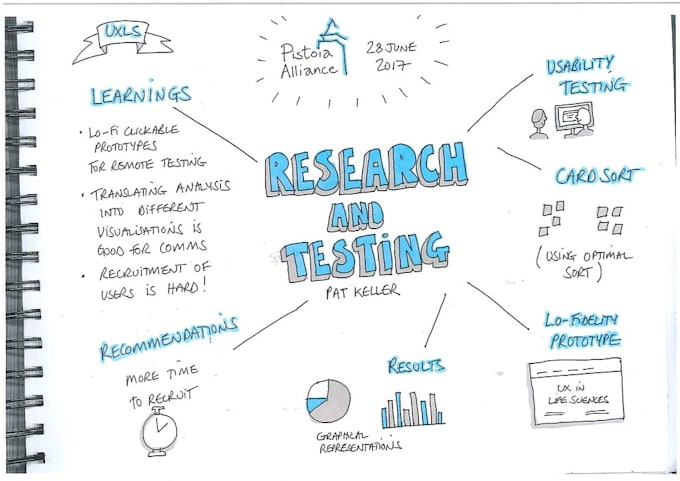 UXLS
Pistoia
Alliance
28 JUNE
2017
LEARNINGS
• LO-FI CLICKABLE
PROTOTYPES
FOR REMOTE TESTING
• TRANSLATING ANALYSIS
INTO DIFFERENT
VISUALISATIONS IS
GOOD FOR COMMS
• RECRUITMENT OF
USERS IS HARD!
RESEARCH
AND
TESTING
PAT KELLER
USABILITY
TESTING
CARD SORT
(USING OPTIMAL
SORT)
LO-FIDELITY
PROTOTYPE
UX IN
LIFE SCIENCES
RECOMMENDATIONS
MORE TIME
TO RECRUIT
RESULTS
GRAPHICAL
REPRESENTATIONS